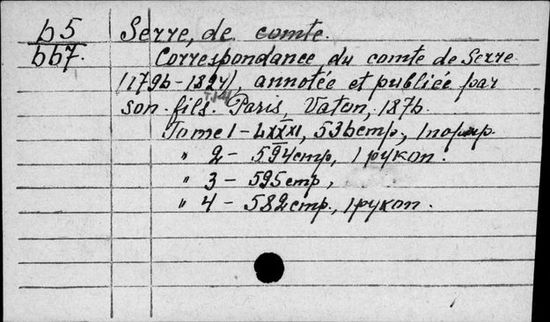 b5 Serre, de comte.
bb7. Correspondance du comte de Serre
(179b-1824), annotée et publiée par
son fils. Paris, Vaton, 187b.
Tome 1 - LXXXI, 53bстр., 1 портр.
" 2 - 594стр, 1 рукоп.
" 3 - 595стр,
" 4 - 582стр., 1 рукоп.